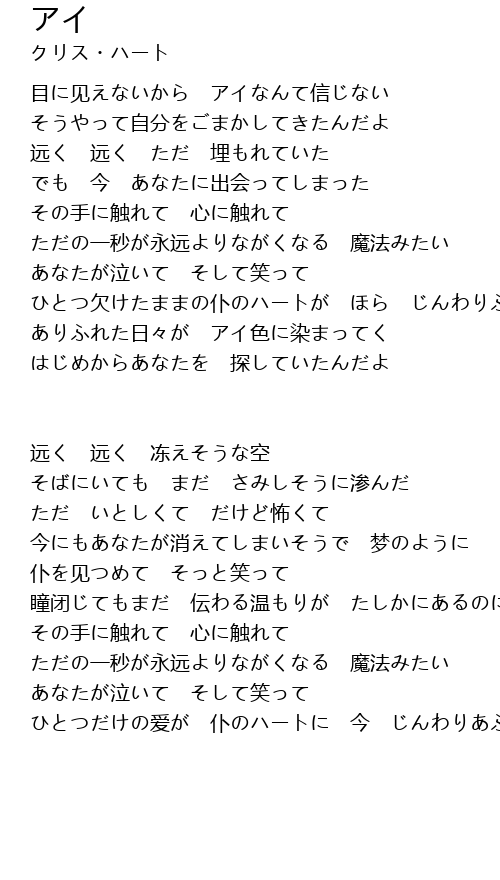 アイ
クリス・ハート
目に见えないから　アイなんて信じない
そうやって自分をごまかしてきたんだよ
远く　远く　ただ　埋もれていた
でも　今　あなたに出会ってしまった
その手に触れて　心に触れて
ただの一秒が永远よりながくなる　魔法みたい
あなたが泣いて　そして笑って
ひとつ欠けたままの仆のハートが　ほら　じんわり
ありふれた日々が　アイ色に染まってく
はじめからあなたを　探していたんだよ
远く　远く　冻えそうな空
そばにいても　まだ　さみしそうに渗んだ
ただ　いとしくて　だけど怖くて
今にもあなたが消えてしまいそうで　梦のように
仆を见つめて　そっと笑って
瞳闭じてもまだ　伝わる温もりが　たしかにあるのに
その手に触れて　心に触れて
ただの一秒が永远よりながくなる　魔法みたい
あなたが泣いて　そして笑って
ひとつだけの爱が　仆のハートに　今　じんわりあ